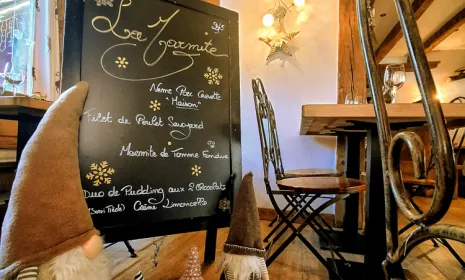 La Marmite
Nems Porc Crevette
"Maison"
Filet de Poulet Savoyard
Marmite de Tomme Fondue
Duo de Pudding aux 2 Chocolats
Crème Limoncello